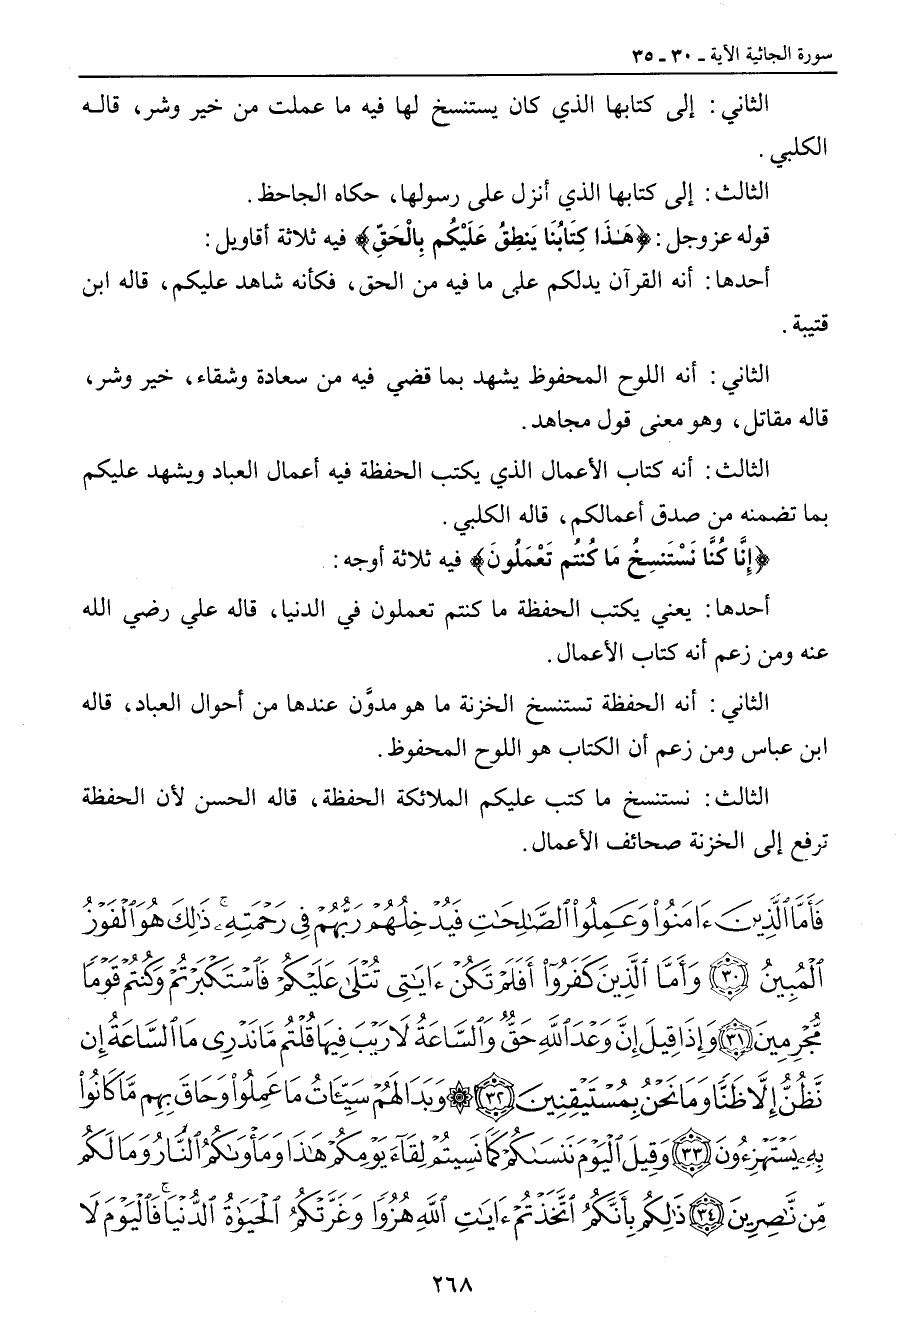 سورة الجاثية الآية ـ ٣٠ ـ ٣٥
الثاني : إلى كتابها الذي كان يستنسخ لها فيه ما عملت من خير وشر، قاله
الكلبي .
الثالث: إلى كتابها الذي أنزل على رسولها، حكاه الجاحظ .
قوله عز وجل : ﴿هَـٰذَا كِتَابُنَا يَنطِقُ عَلَيْكُم بِالْحَقِّ﴾ فيه ثلاثة أقاويل :
أحدها : أنه القرآن يدلكم على ما فيه من الحق، فكأنه شاهد عليكم، قاله ابن
قتيبة .
الثاني : أنه اللوح المحفوظ يشهد بما قضي فيه من سعادة وشقاء، خير وشر،
قاله مقاتل، وهو معنى قول مجاهد .
الثالث : أنه كتاب الأعمال الذي يكتب الحفظة فيه أعمال العباد ويشهد عليكم
بما تضمنه من صدق أعمالكم، قاله الكلبي .
﴿إِنَّا كُنَّا نَسْتَنسِخُ مَا كُنتُم تَعْمَلُونَ﴾ فيه ثلاثة أوجه :
أحدها : يعني يكتب الحفظة ما كنتم تعملون في الدنيا، قاله علي رضي الله
عنه ومن زعم أنه كتاب الأعمال .
الثاني : أنه الحفظة تستنسخ الخزنة ما هو مدوَّن عندها من أحوال العباد، قاله
ابن عباس ومن زعم أن الكتاب هو اللوح المحفوظ .
الثالث : نستنسخ ما كتب عليكم الملائكة الحفظة، قاله الحسن لأن الحفظة
ترفع إلى الخزنة صحائف الأعمال .
فَأَمَّا ٱلَّذِينَ ءَامَنُوا۟ وَعَمِلُوا۟ ٱلصَّـٰلِحَـٰتِ فَيُدْخِلُهُمْ رَبُّهُمْ فِى رَحْمَتِهِۦ ۚ ذَٰلِكَ هُوَ ٱلْفَوْزُ
ٱلْمُبِينُ ﴿٣٠﴾ وَأَمَّا ٱلَّذِينَ كَفَرُوٓا۟ أَفَلَمْ تَكُنْ ءَايَـٰتِى تُتْلَىٰ عَلَيْكُمْ فَٱسْتَكْبَرْتُمْ وَكُنتُمْ قَوْمًا
مُّجْرِمِينَ ﴿٣١﴾ وَإِذَا قِيلَ إِنَّ وَعْدَ ٱللَّهِ حَقٌّ وَٱلسَّاعَةُ لَا رَيْبَ فِيهَا قُلْتُم مَّا نَدْرِى مَا ٱلسَّاعَةُ إِن
نَّظُنُّ إِلَّا ظَنًّا وَمَا نَحْنُ بِمُسْتَيْقِنِينَ ﴿٣٢﴾ ۞ وَبَدَا لَهُمْ سَيِّـَٔاتُ مَا عَمِلُوا۟ وَحَاقَ بِهِم مَّا كَانُوا۟
بِهِۦ يَسْتَهْزِءُونَ ﴿٣٣﴾ وَقِيلَ ٱلْيَوْمَ نَنسَىٰكُمْ كَمَا نَسِيتُمْ لِقَآءَ يَوْمِكُمْ هَـٰذَا وَمَأْوَىٰكُمُ ٱلنَّارُ وَمَا لَكُم
مِّن نَّـٰصِرِينَ ﴿٣٤﴾ ذَٰلِكُم بِأَنَّكُمُ ٱتَّخَذْتُمْ ءَايَـٰتِ ٱللَّهِ هُزُوًا وَغَرَّتْكُمُ ٱلْحَيَوٰةُ ٱلدُّنْيَا ۚ فَٱلْيَوْمَ لَا
٢٦٨